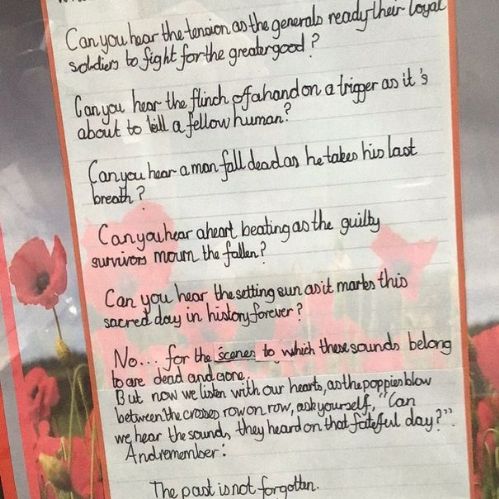 Can you hear the tension as the generals ready their loyal
soldiers to fight for the greater good?
Can you hear the flinch of a hand on a trigger as it's
about to kill a fellow human?
Can you hear a man fall dead as he takes his last
breath?
Can you hear a heart beating as the guilty
survivors mourn the fallen?
Can you hear the setting sun as it marks this
sacred day in history forever?
No... for the scenes to which these sounds belong
to are dead and gone.
But now we listen with our hearts, as the poppies blow
between the crosses row on row, ask yourself, "Can
we hear the sounds, they heard on that fateful day?".
And remember:
The past is not forgotten.